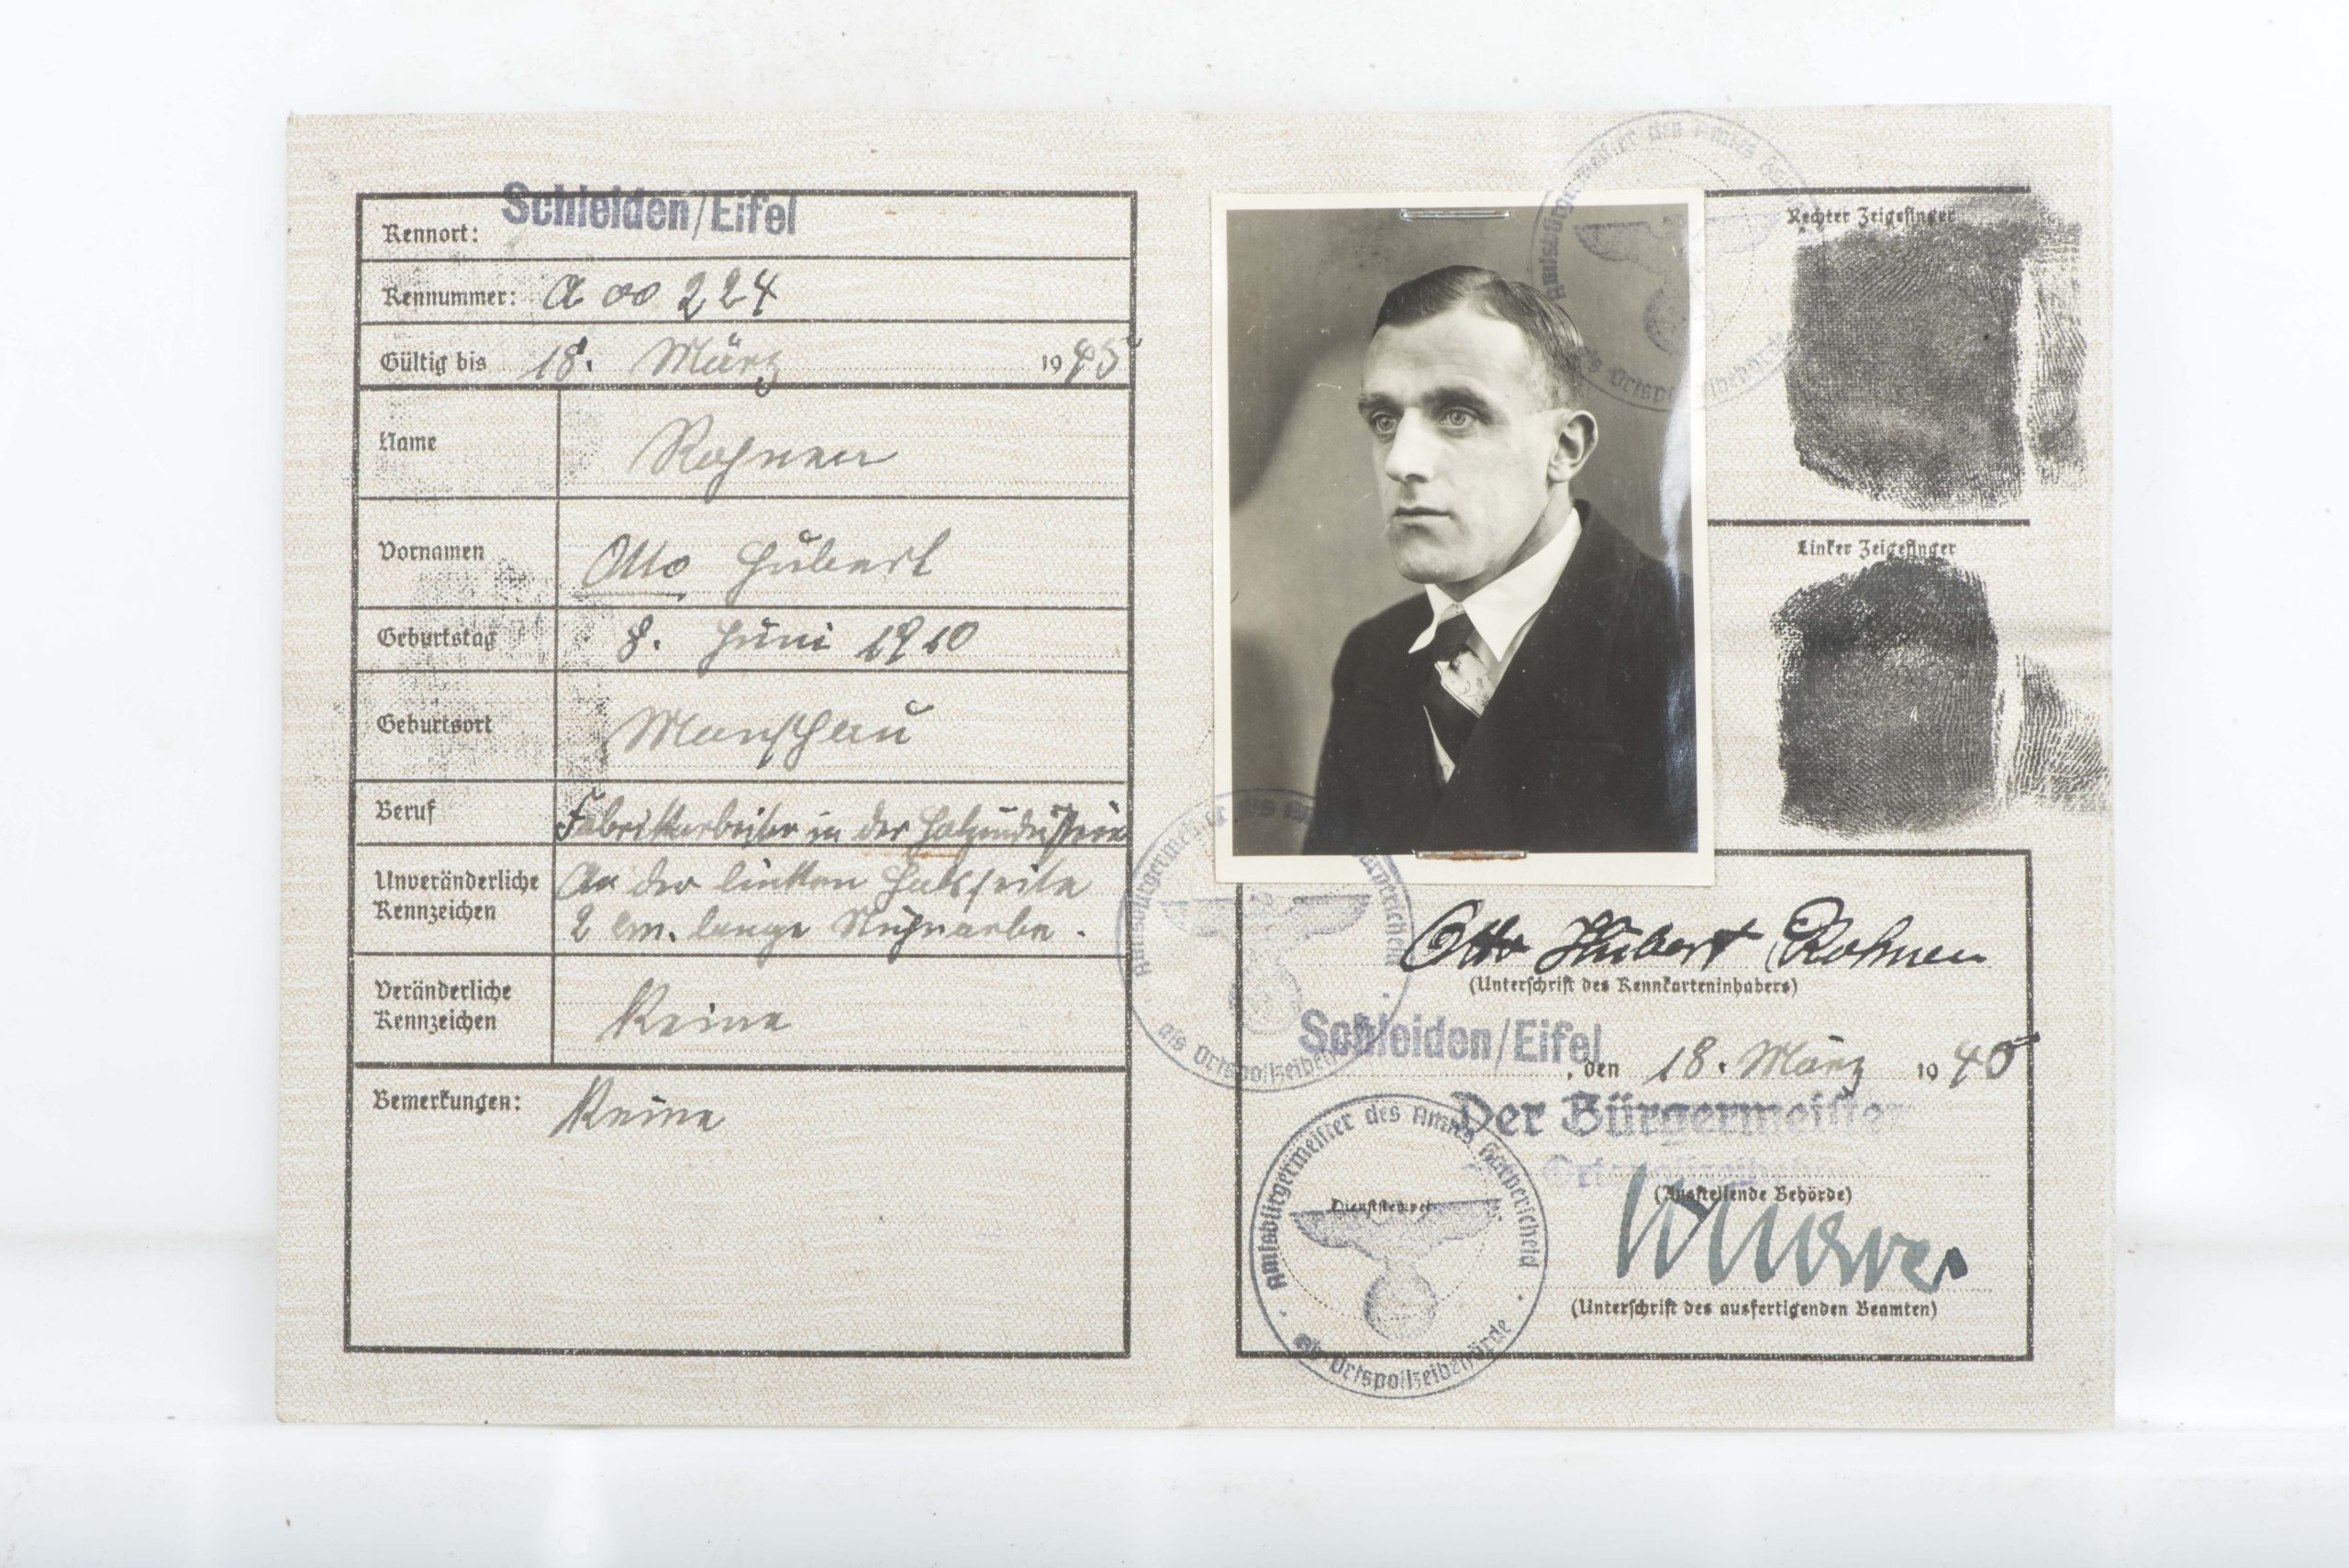 Kennort: Schleiden/Eifel
Kennummer: A 00 224
Gültig bis 18. März 1945
Name Rohnen
Vornamen Otto Hubert
Geburtstag 8. Juni 1910
Geburtsort Monschau
Beruf Fabrikarbeiter in der Holzindustrie
Unveränderliche Kennzeichen An der linken Halsseite
2 cm. lange
Veränderliche Kennzeichen Keine
Bemerkungen: Keine
Rechter Zeigefinger
Linker Zeigefinger
Otto Hubert Rohnen
(Unterschrift des Kennkarteninhabers)
Schleiden/Eifel, den 18. März 1940
Der Bürgermeister
Ortspolizeibehörde
(Ausstellende Behörde)
Dienststempel
(Unterschrift des ausfertigenden Beamten)
Amtsbürgermeister des Amtes Harperscheid
als Ortspolizeibehörde
Amtsbürgermeister des Amtes
als Ortspolizeibehörde
Amtsbürgermeister des Amtes
als Ortspolizeibehörde